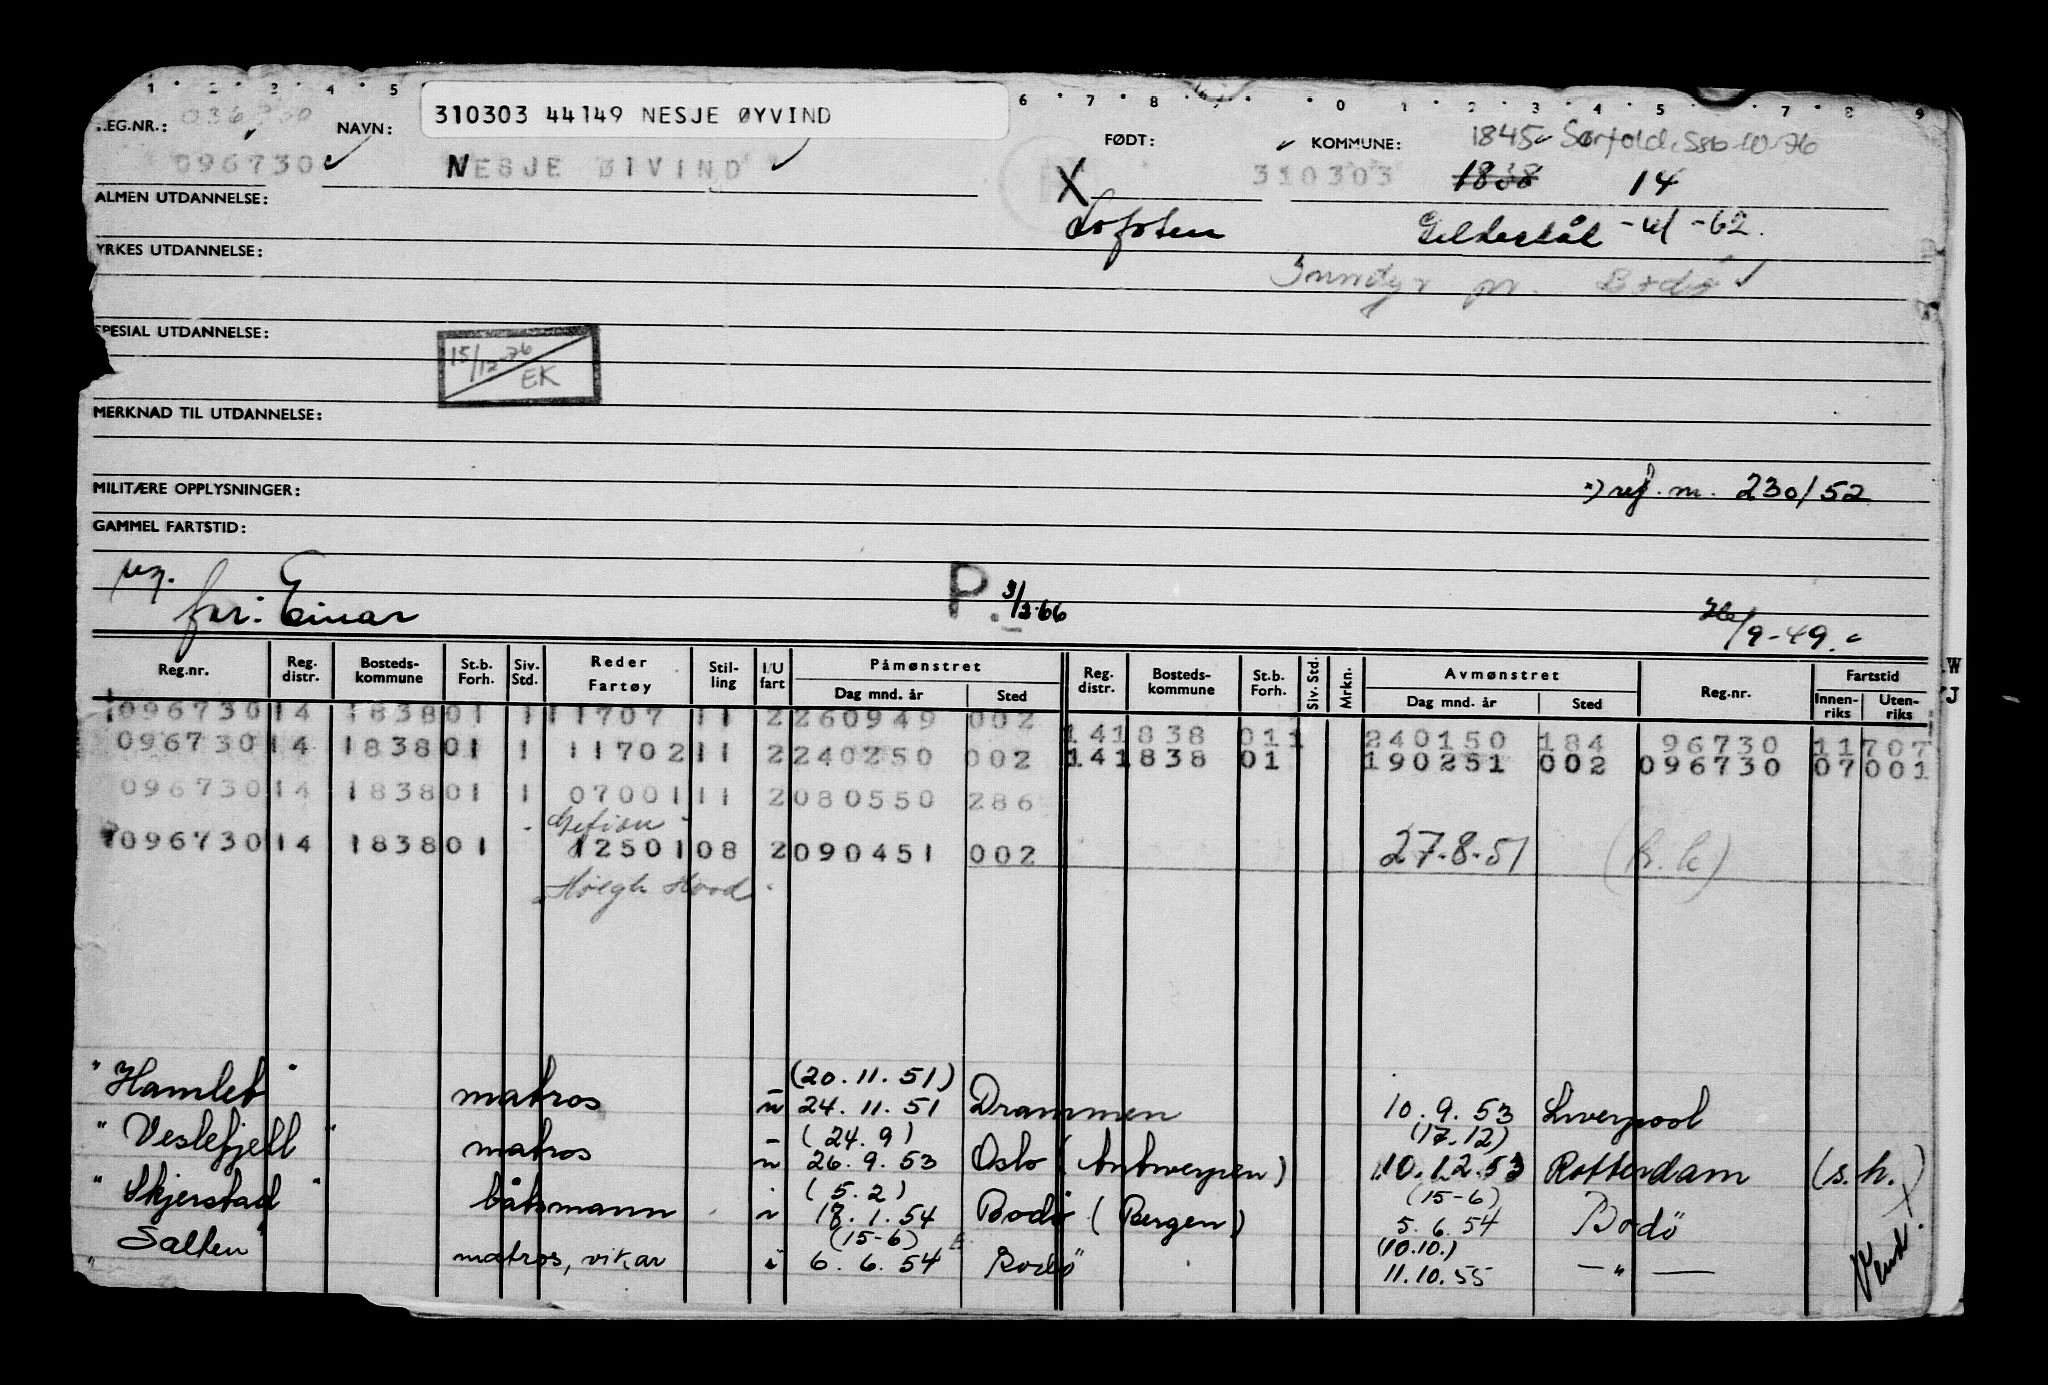 1 2 3 4 5 6 7 8 0 1 2 3 4 5 7 8 9
310303 44149 NESJE ØYVIND
REG.NR.: NAVN: FØDT: KOMMUNE: 1845 Sørfold. Ssb 10-76
096730 NESJE ØIVIND X 310303 1838 14
ALMEN UTDANNELSE: Lofoten Gildeskål -4/-62.
YRKES UTDANNELSE: Inndyr pr. Bodø
SPESIAL UTDANNELSE: 15/12-76 EK
MERKNAD TIL UTDANNELSE:
MILITÆRE OPPLYSNINGER: *) rej. m. 230/52
GAMMEL FARTSTID:
far: Einar P. 3/2-66 /9-49.
Reg.nr. Reg. distr. Bosteds-kommune St.b. Forh. Siv-Std. Reder Fartøy Stil-ling I/U fart Påmønstret Dag mnd. år Sted Reg. distr. Bosteds-kommune St.b. Forh. Siv. Std. Mrkn. Avmønstret Dag mnd. år Sted Reg.nr. Fartstid Innen-riks Uten-riks
W
J
096730 14 1838 01 1 11707 11 2 260949 002 14 1838 01 1 240150 184 96730 11707
096730 14 1838 01 1 11702 11 2 240250 002 14 1838 01 190251 002 096730 07001
096730 14 1838 01 1 07001 11 2 080550 286
Gefion
096730 14 1838 01 12501 08 2 090451 002 27.8.51 (h.k)
Høegh Hood
"Hamlet" matros u (20.11.51) 24.11.51 Drammen 10.9.53 Liverpool
"Veslefjell" matros u (24.9) 26.9.53 Oslo (Antwerpen) (17.12) 10.12.53 Rotterdam (s.h.)
"Skjerstad" båtsmann i (5.2) 18.1.54 Bodø (Bergen) (15-6) 5.6.54 Bodö
"Salten" matros, vikar i (15-6) 6.6.54 Bodö (10.10.) 11.10.55 — " —
Vend.